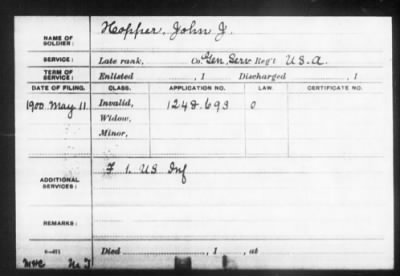 NAME OF SOLDIER: Hopper, John J.
SERVICE: Late rank, Co. Gen. Serv Reg't U.S.A.
TERM OF SERVICE: Enlisted , 1 Discharged , 1
DATE OF FILING. CLASS. APPLICATION NO. LAW. CERTIFICATE NO.
1900. May 11 Invalid, 1248.693 0
Widow,
Minor,
ADDITIONAL SERVICES: F 1. US Inf
REMARKS:
Died , 1 , at